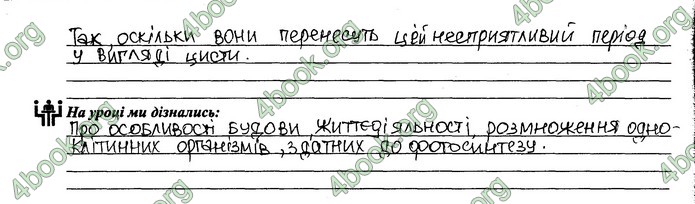 Так, оскільки вони перенесуть цей несприятливий період
у вигляді цисти.
На уроці ми дізнались:
Про особливості будови, життєдіяльності, розмноження одно-
клітинних організмів, здатних до фотосинтезу.
4book.org
4book.org
4book.org
4book.org
4book.org
4book.org